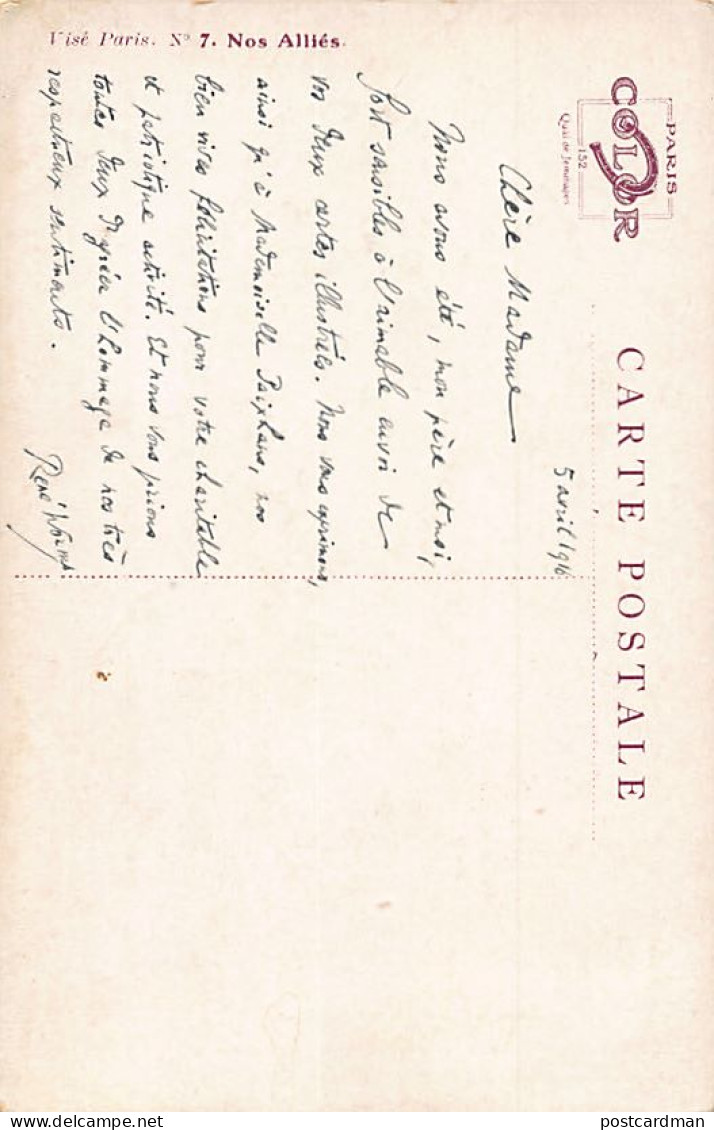 Visé Paris. Nº 7. Nos Alliés.
PARIS
COLOR
152
Quai de Jemmapes
CARTE POSTALE
5 avril 1916
Chère Madame
Nous avons été, mon père et moi,
fort sensibles à l'aimable envoi de
vos deux cartes illustrées. Nous vous exprimons,
ainsi qu'à Mademoiselle Paixhans, nos
bien vives félicitations pour votre charitable
et patriotique activité. Et nous vous prions
toutes deux d'agréer l'hommage de nos très
respectueux sentiments.
René Worms
postcardman